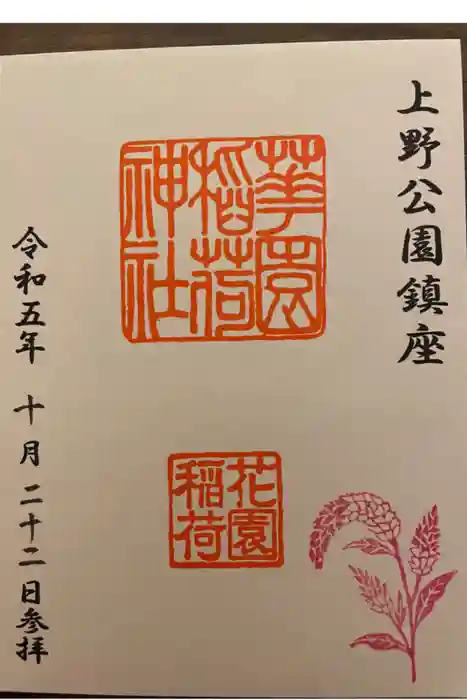 上野公園鎮座
華園
稲荷
神社
花園
稲荷
令和五年 十月二十二日参拝